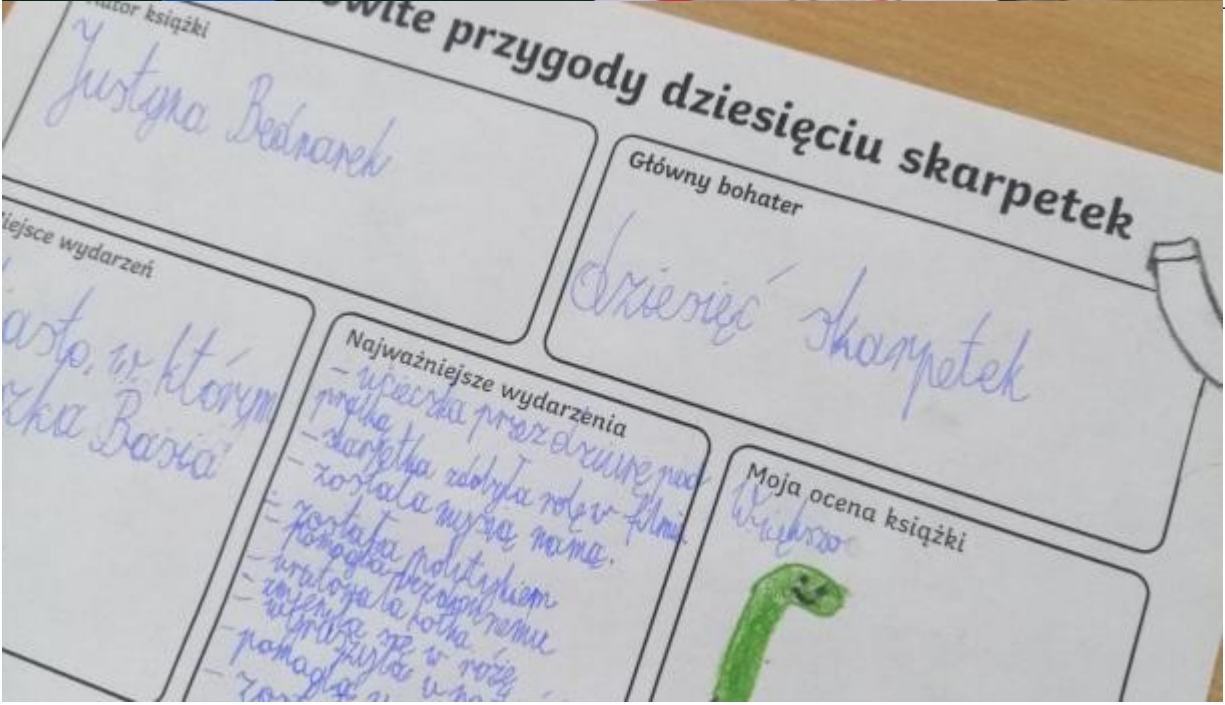 owite przygody dziesięciu skarpetek
Autor książki
Justyna Bednarek
Główny bohater
dziesięć skarpetek
iejsce wydarzeń
asto, w którym
zka Basia
Najważniejsze wydarzenia
- ucieczka przez dziurę pod
pralką
- skarpetka zdobyła rolę w filmie
- została mysią mamą.
- została politykiem
- pomogła
- uratowała kotka
- zmieniła się w różę
pomogła
Moja ocena książki